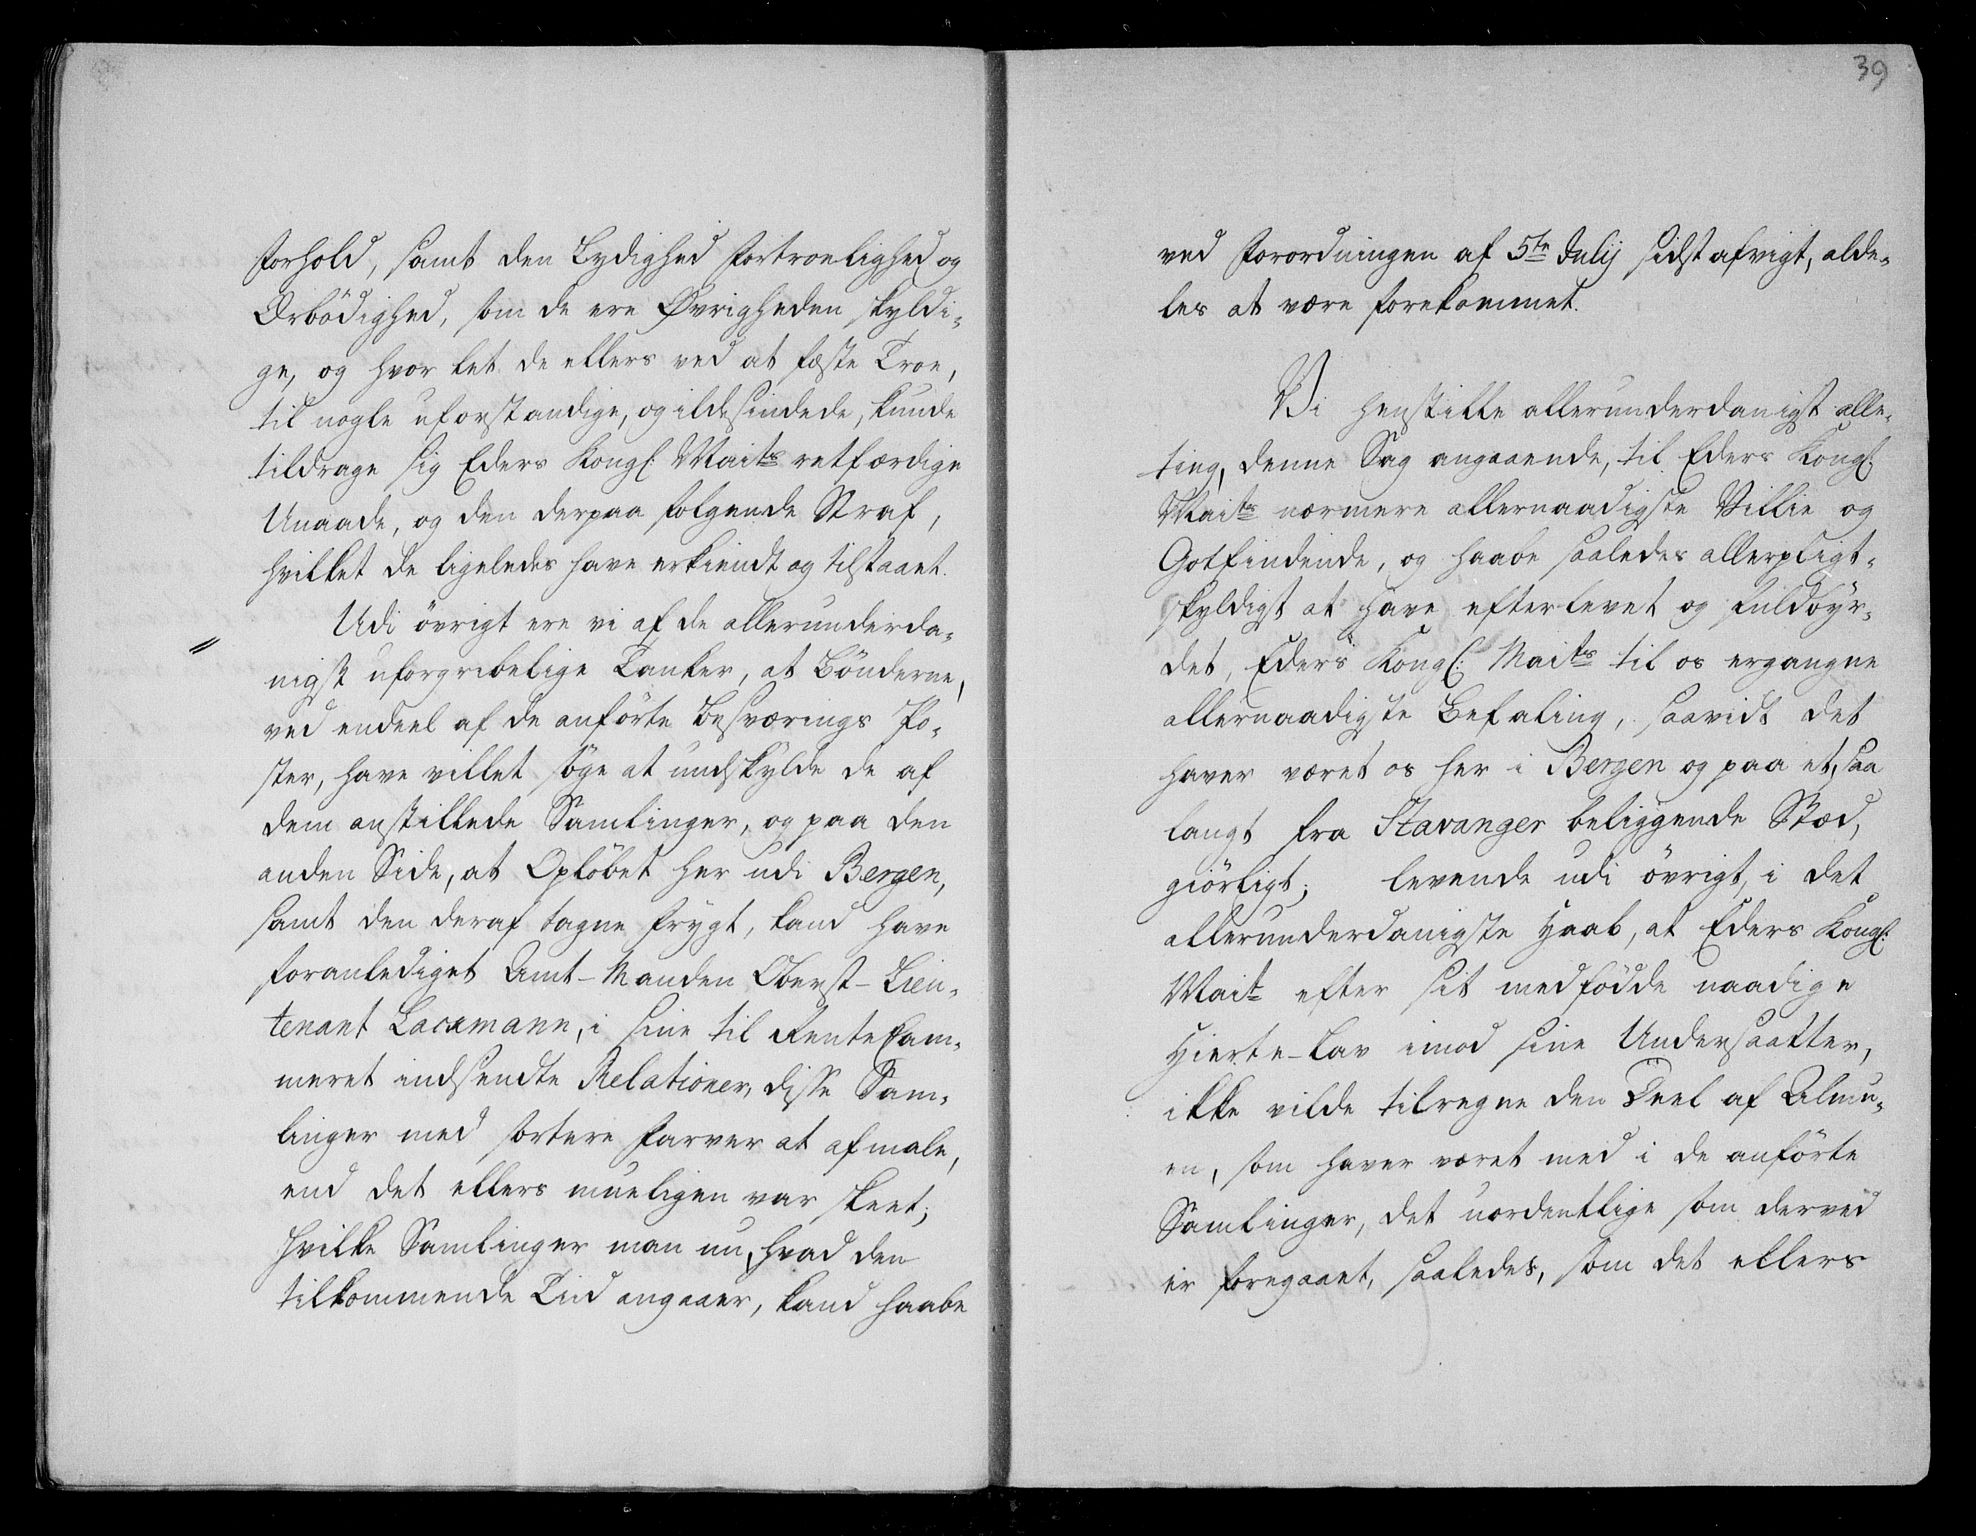 Forhold, samt den Lydighed Fortroelighed og
Ærbödighed, som de ere Øvrigheden skyldi-
ge, og hvor let de ellers ved at fæste Troe,
til nogle uforstandige, og ildesindede, kunde
tildrage sig Eders Kongl: Maits retfærdige
Unaade, og den derpaa folgende Straf,
hvilket de ligeledes have erkiendt og tilstaaet.
Udi övrigt ere vi af de allerunderda-
nigst uforgribelige Tanker, at Bönderne,
ved endeel af de anförte Besværings Po-
ster, have villet söge at undskylde de af
dem anstillede Samlinger, og paa den
anden Side, at Oplöbet her udi Bergen,
samt den deraf tagne Frygt, kand have
foranlediget Amt-Manden Oberst-Lieu-
tenant Lacxmann, i sine til RenteCam-
meret indsendte Relationer, disse Sam-
linger med sortere Farver at afmale,
end det ellers mueligen var skeet;
hvilke Samlinger man nu, hvad den
tilkommende Tiid angaaer, kand haabe
39
ved Forordningen af 5te Julij sidst afvigt, alde-
les at være forekommet.
Vi henstille allerunderdanigst alle-
ting, denne Sag angaaende, til Eders Kongl:
Maits nærmere allernaadigste Villie og
Gotfindende, og haabe saaledes allerpligt-
skyldigst at have efterlevet og fuldbyr-
det, Eders Kongl: Maits til os ergangne
allernaadigste Befaling, saavidt det
haver været os her i Bergen og paa et, saa
langt fra Stavanger beliggende Stæd,
giörligt; levende udi övrigt, i det
allerunderdanigste Haab, at Eders Kongl:
Mait efter sit medfödde naadige
Hierte-Lav imod sine Undersaatter,
ikke vilde tilregne den Deel af Almu-
en, som haver været med i de anförte
Samlinger, det uordentlige som derved
er foregaaet, saaledes, som det ellers